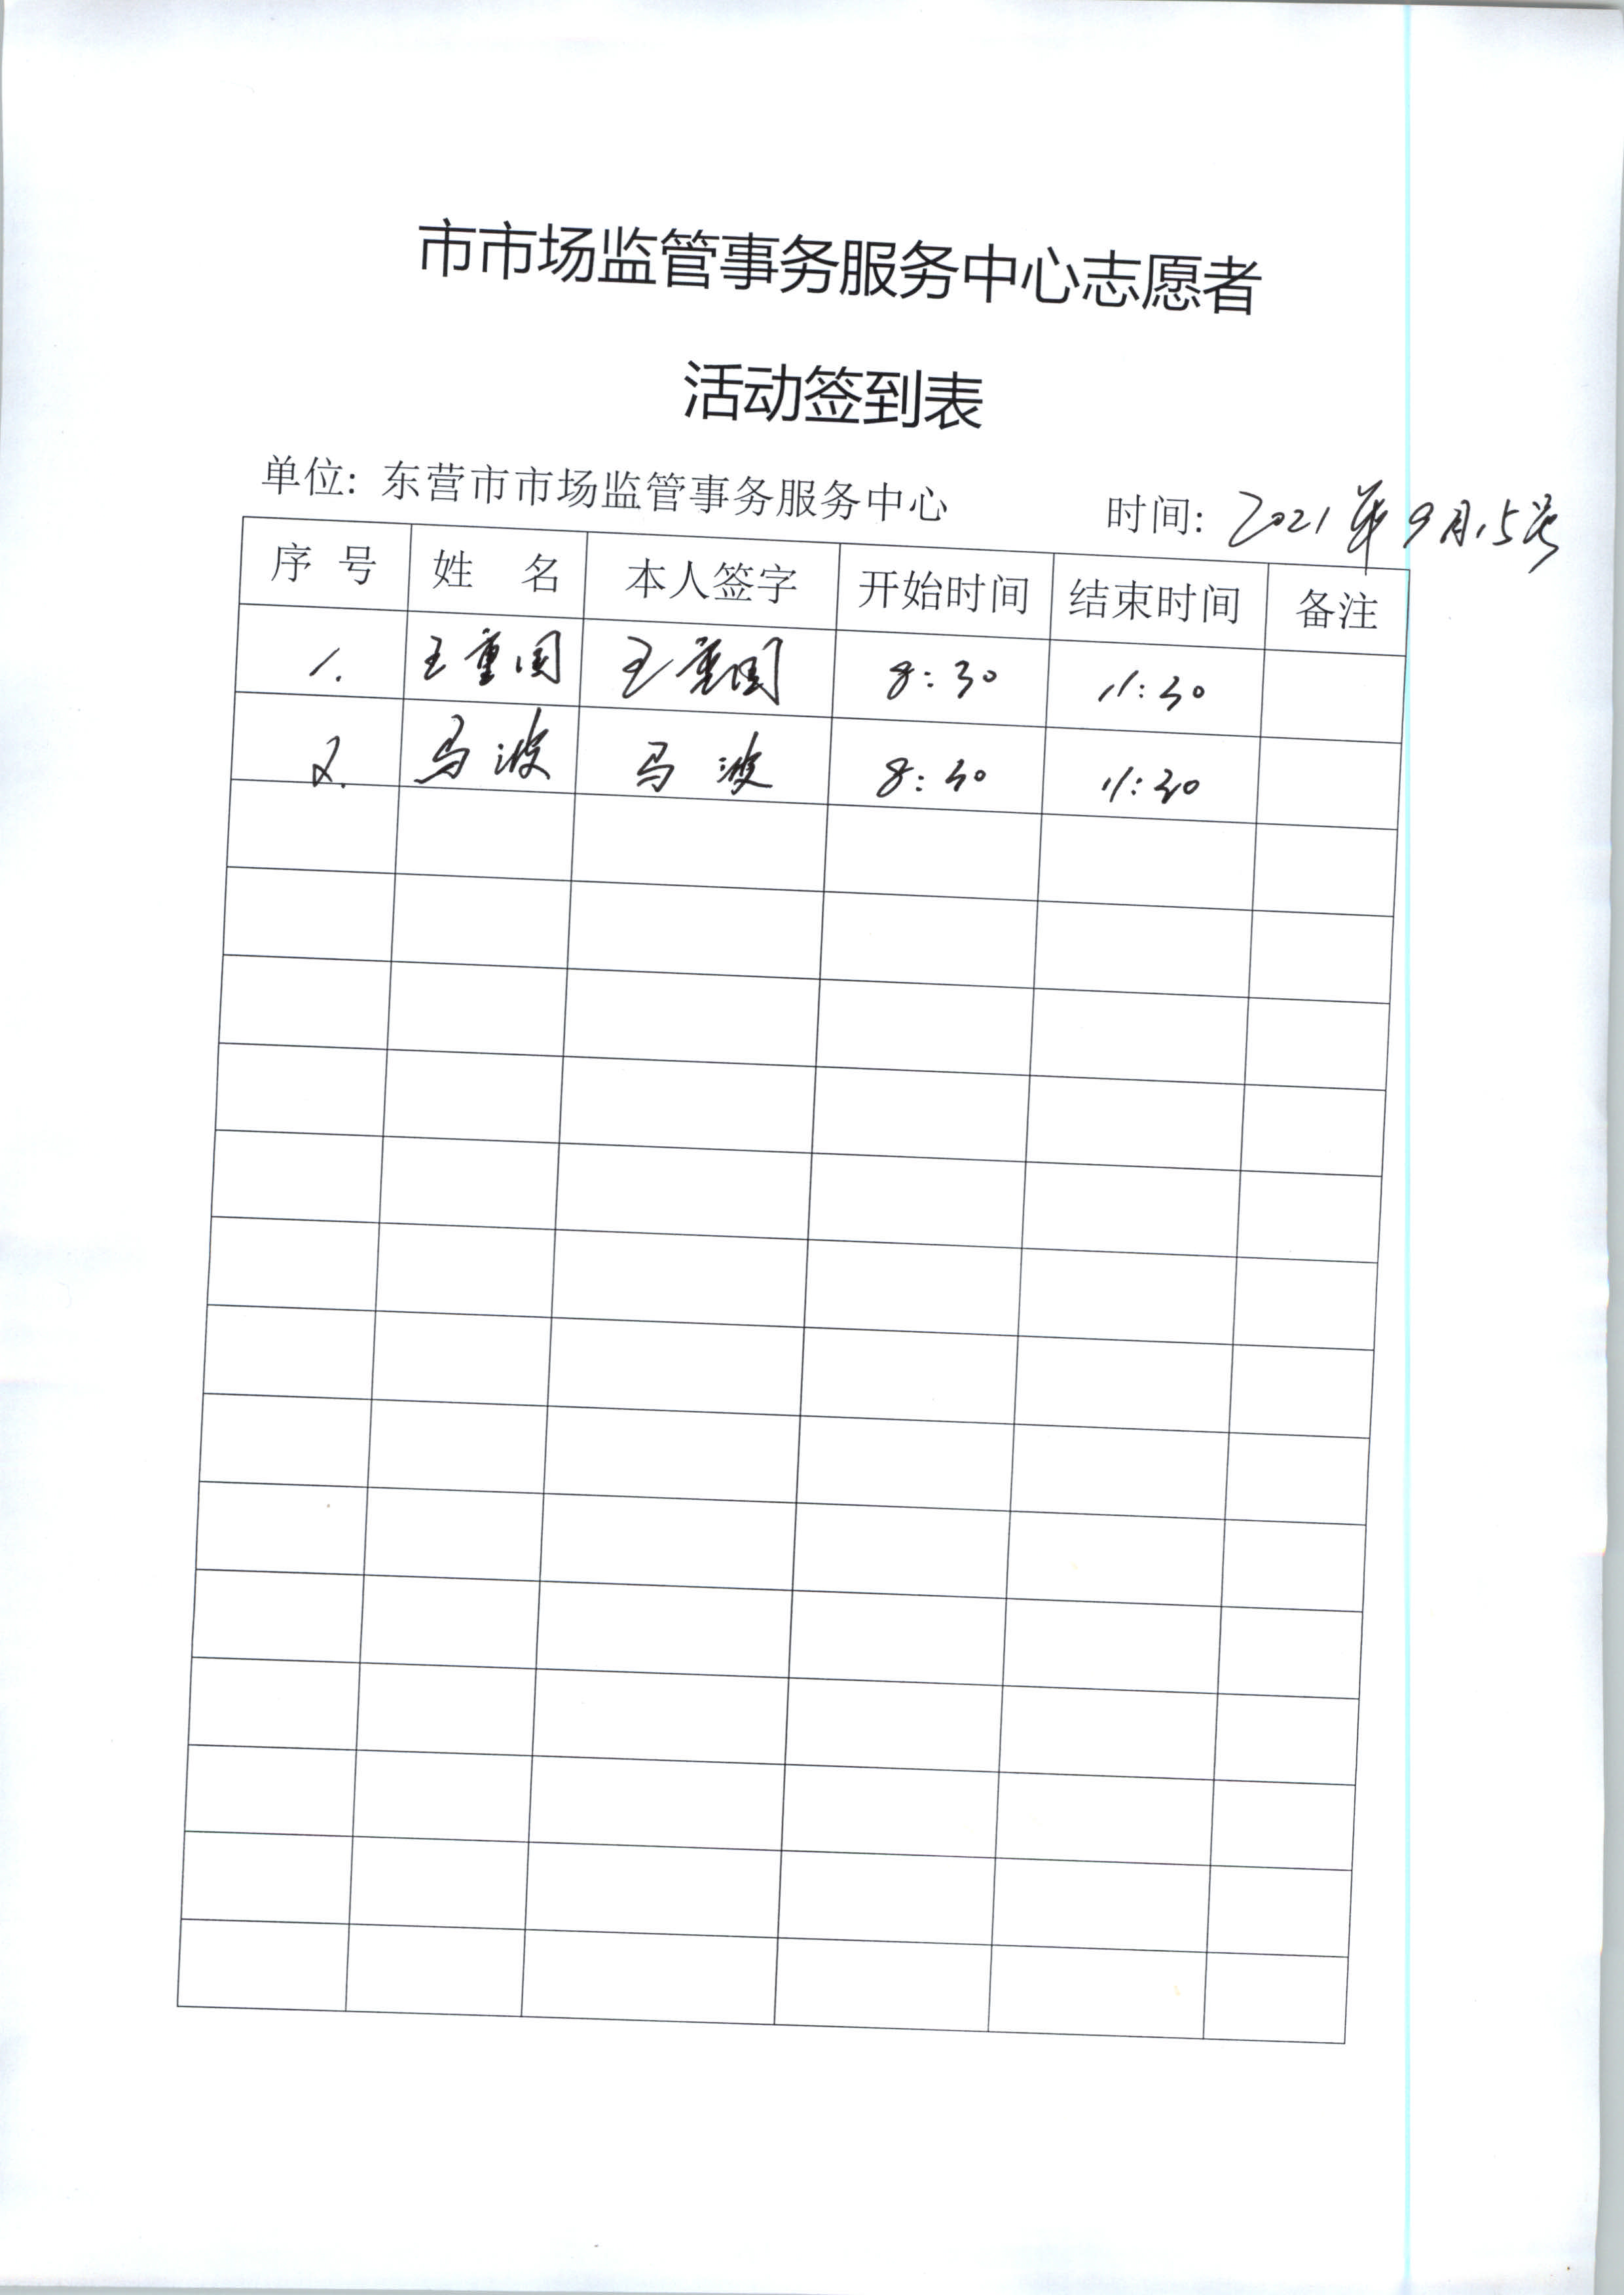 市市场监管事务服务中心志愿者
活动签到表
单位: 东营市市场监管事务服务中心 时间: 2021年9月15号
序 号 姓 名 本人签字 开始时间 结束时间 备注
1. 王重国 王重国 8:30 11:30
2. 马波 马波 8:30 11:30